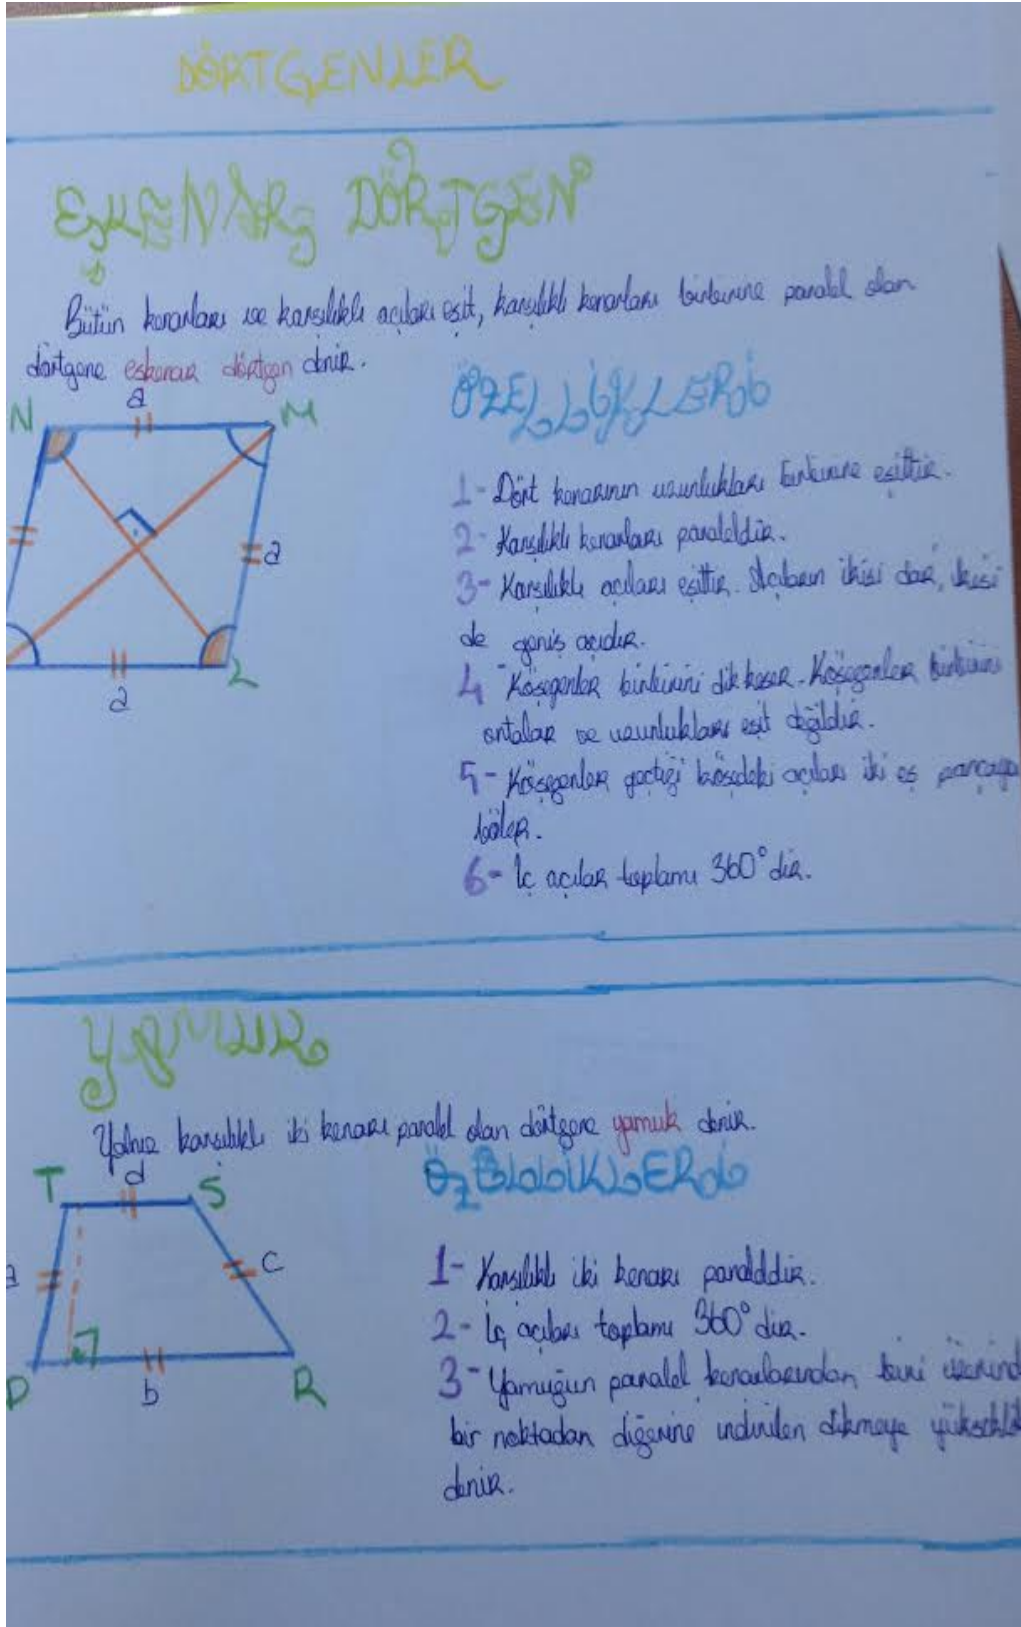 DÖRTGENLER
EŞKENAR DÖRTGEN
Bütün kenarları ve karşılıklı açıları eşit, karşılıklı kenarları birbirine paralel olan
dörtgene eşkenar dörtgen denir.
ÖZELLİKLERİ
N a M
a
a L
1- Dört kenarının uzunlukları birbirine eşittir.
2- Karşılıklı kenarları paraleldir.
3- Karşılıklı açıları eşittir. Açıların ikisi dar, ikisi
de geniş açıdır.
4- Köşegenler birbirini dik keser. Köşegenler birbirini
ortalar ve uzunlukları eşit değildir.
5- Köşegenler geçtiği köşedeki açıları iki eş parçaya
böler.
6- İç açılar toplamı 360° dir.
YAMUK
Yalnız karşılıklı iki kenarı paralel olan dörtgene yamuk denir.
ÖZELLİKLERİ
T d S
a c
P b R
1- Karşılıklı iki kenarı paraleldir.
2- İç açıları toplamı 360° dir.
3- Yamuğun paralel kenarlarından biri üzerind
bir noktadan diğerine indirilen dikmeye yüksekli
denir.